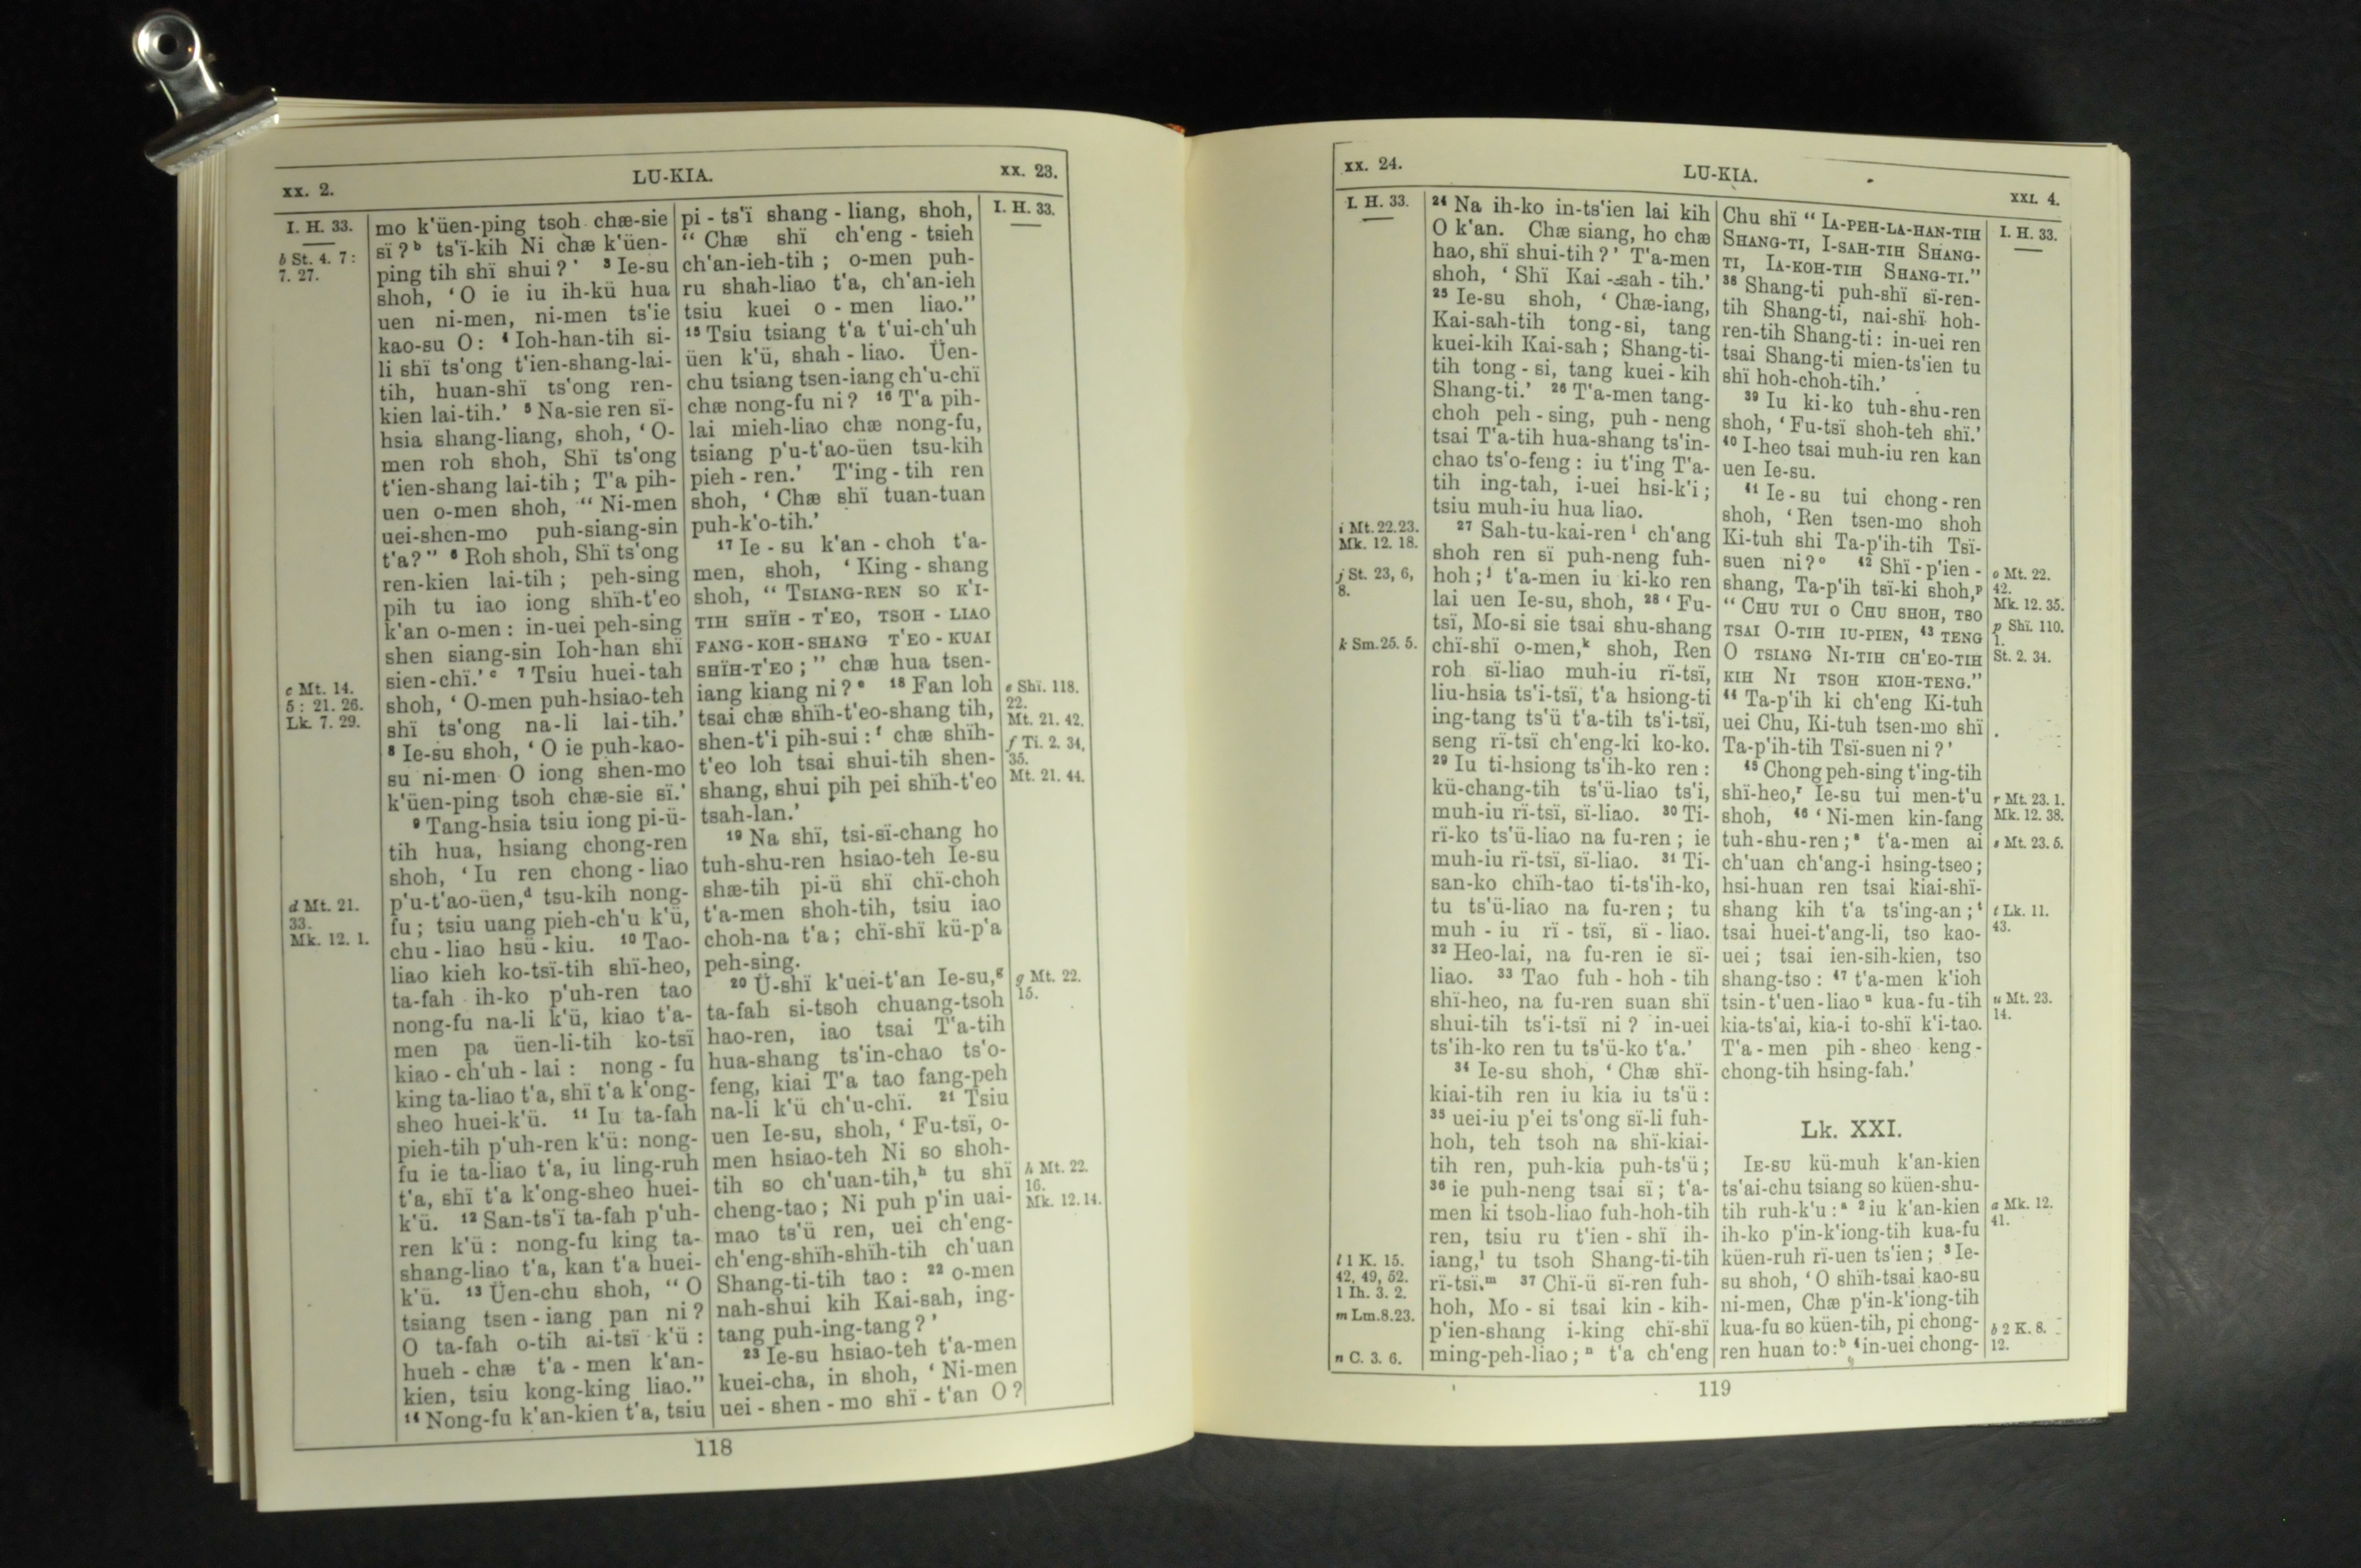 xx. 2.
LU-KIA.
xx. 23.
I. H. 33.
b St. 4. 7:
7. 27.
c Mt. 14.
5: 21. 26.
Lk. 7. 29.
d Mt. 21.
33.
Mk. 12. 1.
mo k'üen-ping tsoh chæ-sie
sï? b ts'ï-kih Ni chæ k'üen-
ping tih shï shui?' 3 Ie-su
shoh, 'O ie iu ih-kü hua
uen ni-men, ni-men ts'ie
kao-su O: 4 Ioh-han-tih si-
li shï ts'ong t'ien-shang-lai-
tih, huan-shï ts'ong ren-
kien lai-tih.' 5 Na-sie ren sï-
hsia shang-liang, shoh, 'O-
men roh shoh, Shï ts'ong
t'ien-shang lai-tih; T'a pih-
uen o-men shoh, "Ni-men
uei-shen-mo puh-siang-sin
t'a?" 6 Roh shoh, Shï ts'ong
ren-kien lai-tih; peh-sing
pih tu iao iong shïh-t'eo
k'an o-men: in-uei peh-sing
shen siang-sin Ioh-han shï
sien-chï.' c 7 Tsiu huei-tah
shoh, 'O-men puh-hsiao-teh
shï ts'ong na-li lai-tih.'
8 Ie-su shoh, 'O ie puh-kao-
su ni-men O iong shen-mo
k'üen-ping tsoh chæ-sie sï.'
9 Tang-hsia tsiu iong pi-ü-
tih hua, hsiang chong-ren
shoh, 'Iu ren chong-liao
p'u-t'ao-üen, d tsu-kih nong-
fu; tsiu uang pieh-ch'u k'ü,
chu-liao hsü-kiu. 10 Tao-
liao kieh ko-tsï-tih shï-heo,
ta-fah ih-ko p'uh-ren tao
nong-fu na-li k'ü, kiao t'a-
men pa üen-li-tih ko-tsï
kiao-ch'uh-lai: nong-fu
king ta-liao t'a, shï t'a k'ong-
sheo huei-k'ü. 11 Iu ta-fah
pieh-tih p'uh-ren k'ü: nong-
fu ie ta-liao t'a, iu ling-ruh
t'a, shï t'a k'ong-sheo huei-
k'ü. 12 San-ts'ï ta-fah p'uh-
ren k'ü: nong-fu king ta-
shang-liao t'a, kan t'a huei-
k'ü. 13 Üen-chu shoh, "O
tsiang tsen-iang pan ni?
O ta-fah o-tih ai-tsï k'ü:
hueh-chæ t'a-men k'an-
kien, tsiu kong-king liao."
14 Nong-fu k'an-kien t'a, tsiu
pi-ts'ï shang-liang, shoh,
"Chæ shï ch'eng-tsieh
ch'an-ieh-tih; o-men puh-
ru shah-liao t'a, ch'an-ieh
tsiu kuei o-men liao."
15 Tsiu tsiang t'a t'ui-ch'uh
üen k'ü, shah-liao. Üen-
chu tsiang tsen-iang ch'u-chï
chæ nong-fu ni? 16 T'a pih-
lai mieh-liao chæ nong-fu,
tsiang p'u-t'ao-üen tsu-kih
pieh-ren.' T'ing-tih ren
shoh, 'Chæ shï tuan-tuan
puh-k'o-tih.'
17 Ie-su k'an-choh t'a-
men, shoh, 'King-shang
shoh, "TSIANG-REN SO K'I-
TIH SHÏH-T'EO, TSOH-LIAO
FANG-KOH-SHANG T'EO-KUAI
SHÏH-T'EO;" chæ hua tsen-
iang kiang ni? e 18 Fan loh
tsai chæ shïh-t'eo-shang tih,
shen-t'i pih-sui: f chæ shïh-
t'eo loh tsai shui-tih shen-
shang, shui pih pei shïh-t'eo
tsah-lan.'
19 Na shï, tsi-sï-chang ho
tuh-shu-ren hsiao-teh Ie-su
shæ-tih pi-ü shï chï-choh
t'a-men shoh-tih, tsiu iao
choh-na t'a; chï-shï kü-p'a
peh-sing.
20 Ü-shï k'uei-t'an Ie-su, g
ta-fah si-tsoh chuang-tsoh
hao-ren, iao tsai T'a-tih
hua-shang ts'in-chao ts'o-
feng, kiai T'a tao fang-peh
na-li k'ü ch'u-chï. 21 Tsiu
uen Ie-su, shoh, 'Fu-tsï, o-
men hsiao-teh Ni so shoh-
tih so ch'uan-tih, h tu shï
cheng-tao; Ni puh p'in uai-
mao ts'ü ren, uei ch'eng-
ch'eng-shïh-shïh-tih ch'uan
Shang-ti-tih tao: 22 o-men
nah-shui kih Kai-sah, ing-
tang puh-ing-tang?'
23 Ie-su hsiao-teh t'a-men
kuei-cha, in shoh, 'Ni-men
uei-shen-mo shï-t'an O?
I. H. 33.
e Shï. 118.
22.
Mt. 21. 42.
f Ti. 2. 34,
35.
Mt. 21. 44.
g Mt. 22.
15.
h Mt. 22.
16.
Mk. 12. 14.
118
xx. 24.
LU-KIA.
XXI. 4.
I. H. 33.
i Mt. 22. 23.
Mk. 12. 18.
j St. 23, 6,
8.
k Sm. 25. 5.
l 1 K. 15.
42, 49, 52.
1 Ih. 3. 2.
m Lm. 8. 23.
n C. 3. 6.
24 Na ih-ko in-ts'ien lai kih
O k'an. Chæ siang, ho chæ
hao, shï shui-tih?' T'a-men
shoh, 'Shï Kai-sah-tih.'
25 Ie-su shoh, 'Chæ-iang,
Kai-sah-tih tong-si, tang
kuei-kih Kai-sah; Shang-ti-
tih tong-si, tang kuei-kih
Shang-ti.' 26 T'a-men tang-
choh peh-sing, puh-neng
tsai T'a-tih hua-shang ts'in-
chao ts'o-feng: iu t'ing T'a-
tih ing-tah, i-uei hsi-k'i;
tsiu muh-iu hua liao.
27 Sah-tu-kai-ren i ch'ang
shoh ren sï puh-neng fuh-
hoh; j t'a-men iu ki-ko ren
lai uen Ie-su, shoh, 28 'Fu-
tsï, Mo-si sie tsai shu-shang
chï-shï o-men, k shoh, Ren
roh sï-liao muh-iu rï-tsï,
liu-hsia ts'i-tsï, t'a hsiong-ti
ing-tang ts'ü t'a-tih ts'i-tsï,
seng rï-tsï ch'eng-ki ko-ko.
29 Iu ti-hsiong ts'ih-ko ren:
kü-chang-tih ts'ü-liao ts'i,
muh-iu rï-tsï, sï-liao. 30 Ti-
rï-ko ts'ü-liao na fu-ren; ie
muh-iu rï-tsï, sï-liao. 31 Ti-
san-ko chïh-tao ti-ts'ih-ko,
tu ts'ü-liao na fu-ren; tu
muh-iu rï-tsï, sï-liao.
32 Heo-lai, na fu-ren ie sï-
liao. 33 Tao fuh-hoh-tih
shï-heo, na fu-ren suan shï
shui-tih ts'i-tsï ni? in-uei
ts'ih-ko ren tu ts'ü-ko t'a.'
34 Ie-su shoh, 'Chæ shï-
kiai-tih ren iu kia iu ts'ü:
35 uei-iu p'ei ts'ong sï-li fuh-
hoh, teh tsoh na shï-kiai-
tih ren, puh-kia puh-ts'ü;
36 ie puh-neng tsai sï; t'a-
men ki tsoh-liao fuh-hoh-tih
ren, tsiu ru t'ien-shï ih-
iang, l tu tsoh Shang-ti-tih
rï-tsï. m 37 Chï-ü sï-ren fuh-
hoh, Mo-si tsai kin-kih-
p'ien-shang i-king chï-shï
ming-peh-liao; n t'a ch'eng
Chu shï "IA-PEH-LA-HAN-TIH
SHANG-TI, I-SAH-TIH SHANG-
TI, IA-KOH-TIH SHANG-TI."
38 Shang-ti puh-shï sï-ren-
tih Shang-ti, nai-shï hoh-
ren-tih Shang-ti: in-uei ren
tsai Shang-ti mien-ts'ien tu
shï hoh-choh-tih.'
39 Iu ki-ko tuh-shu-ren
shoh, 'Fu-tsï shoh-teh shï.'
40 I-heo tsai muh-iu ren kan
uen Ie-su.
41 Ie-su tui chong-ren
shoh, 'Ren tsen-mo shoh
Ki-tuh shi Ta-p'ih-tih Tsï-
suen ni? o 42 Shï-p'ien-
shang, Ta-p'ih tsï-ki shoh, p
"CHU TUI O CHU SHOH, TSO
TSAI O-TIH IU-PIEN, 43 TENG
O TSIANG NI-TIH CH'EO-TIH
KIH NI TSOH KIOH-TENG."
44 Ta-p'ih ki ch'eng Ki-tuh
uei Chu, Ki-tuh tsen-mo shï
Ta-p'ih-tih Tsï-suen ni?'
45 Chong peh-sing t'ing-tih
shï-heo, r Ie-su tui men-t'u
shoh, 46 'Ni-men kin-fang
tuh-shu-ren; s t'a-men ai
ch'uan ch'ang-i hsing-tseo;
hsi-huan ren tsai kiai-shï-
shang kih t'a ts'ing-an; t
tsai huei-t'ang-li, tso kao-
uei; tsai ien-sih-kien, tso
shang-tso: 47 t'a-men k'ioh
tsin-t'uen-liao u kua-fu-tih
kia-ts'ai, kia-i to-shï k'i-tao.
T'a-men pih-sheo keng-
chong-tih hsing-fah.'
Lk. XXI.
IE-SU kü-muh k'an-kien
ts'ai-chu tsiang so küen-shu-
tih ruh-k'u: a 2 iu k'an-kien
ih-ko p'in-k'iong-tih kua-fu
küen-ruh rï-uen ts'ien; 3 Ie-
su shoh, 'O shïh-tsai kao-su
ni-men, Chæ p'in-k'iong-tih
kua-fu so küen-tih, pi chong-
ren huan to: b 4 in-uei chong-
I. H. 33.
o Mt. 22.
42.
Mk. 12. 35.
p Shï. 110.
1.
St. 2. 34.
r Mt. 23. 1.
Mk. 12. 38.
s Mt. 23. 5.
t Lk. 11.
43.
u Mt. 23.
14.
a Mk. 12.
41.
b 2 K. 8.
12.
119